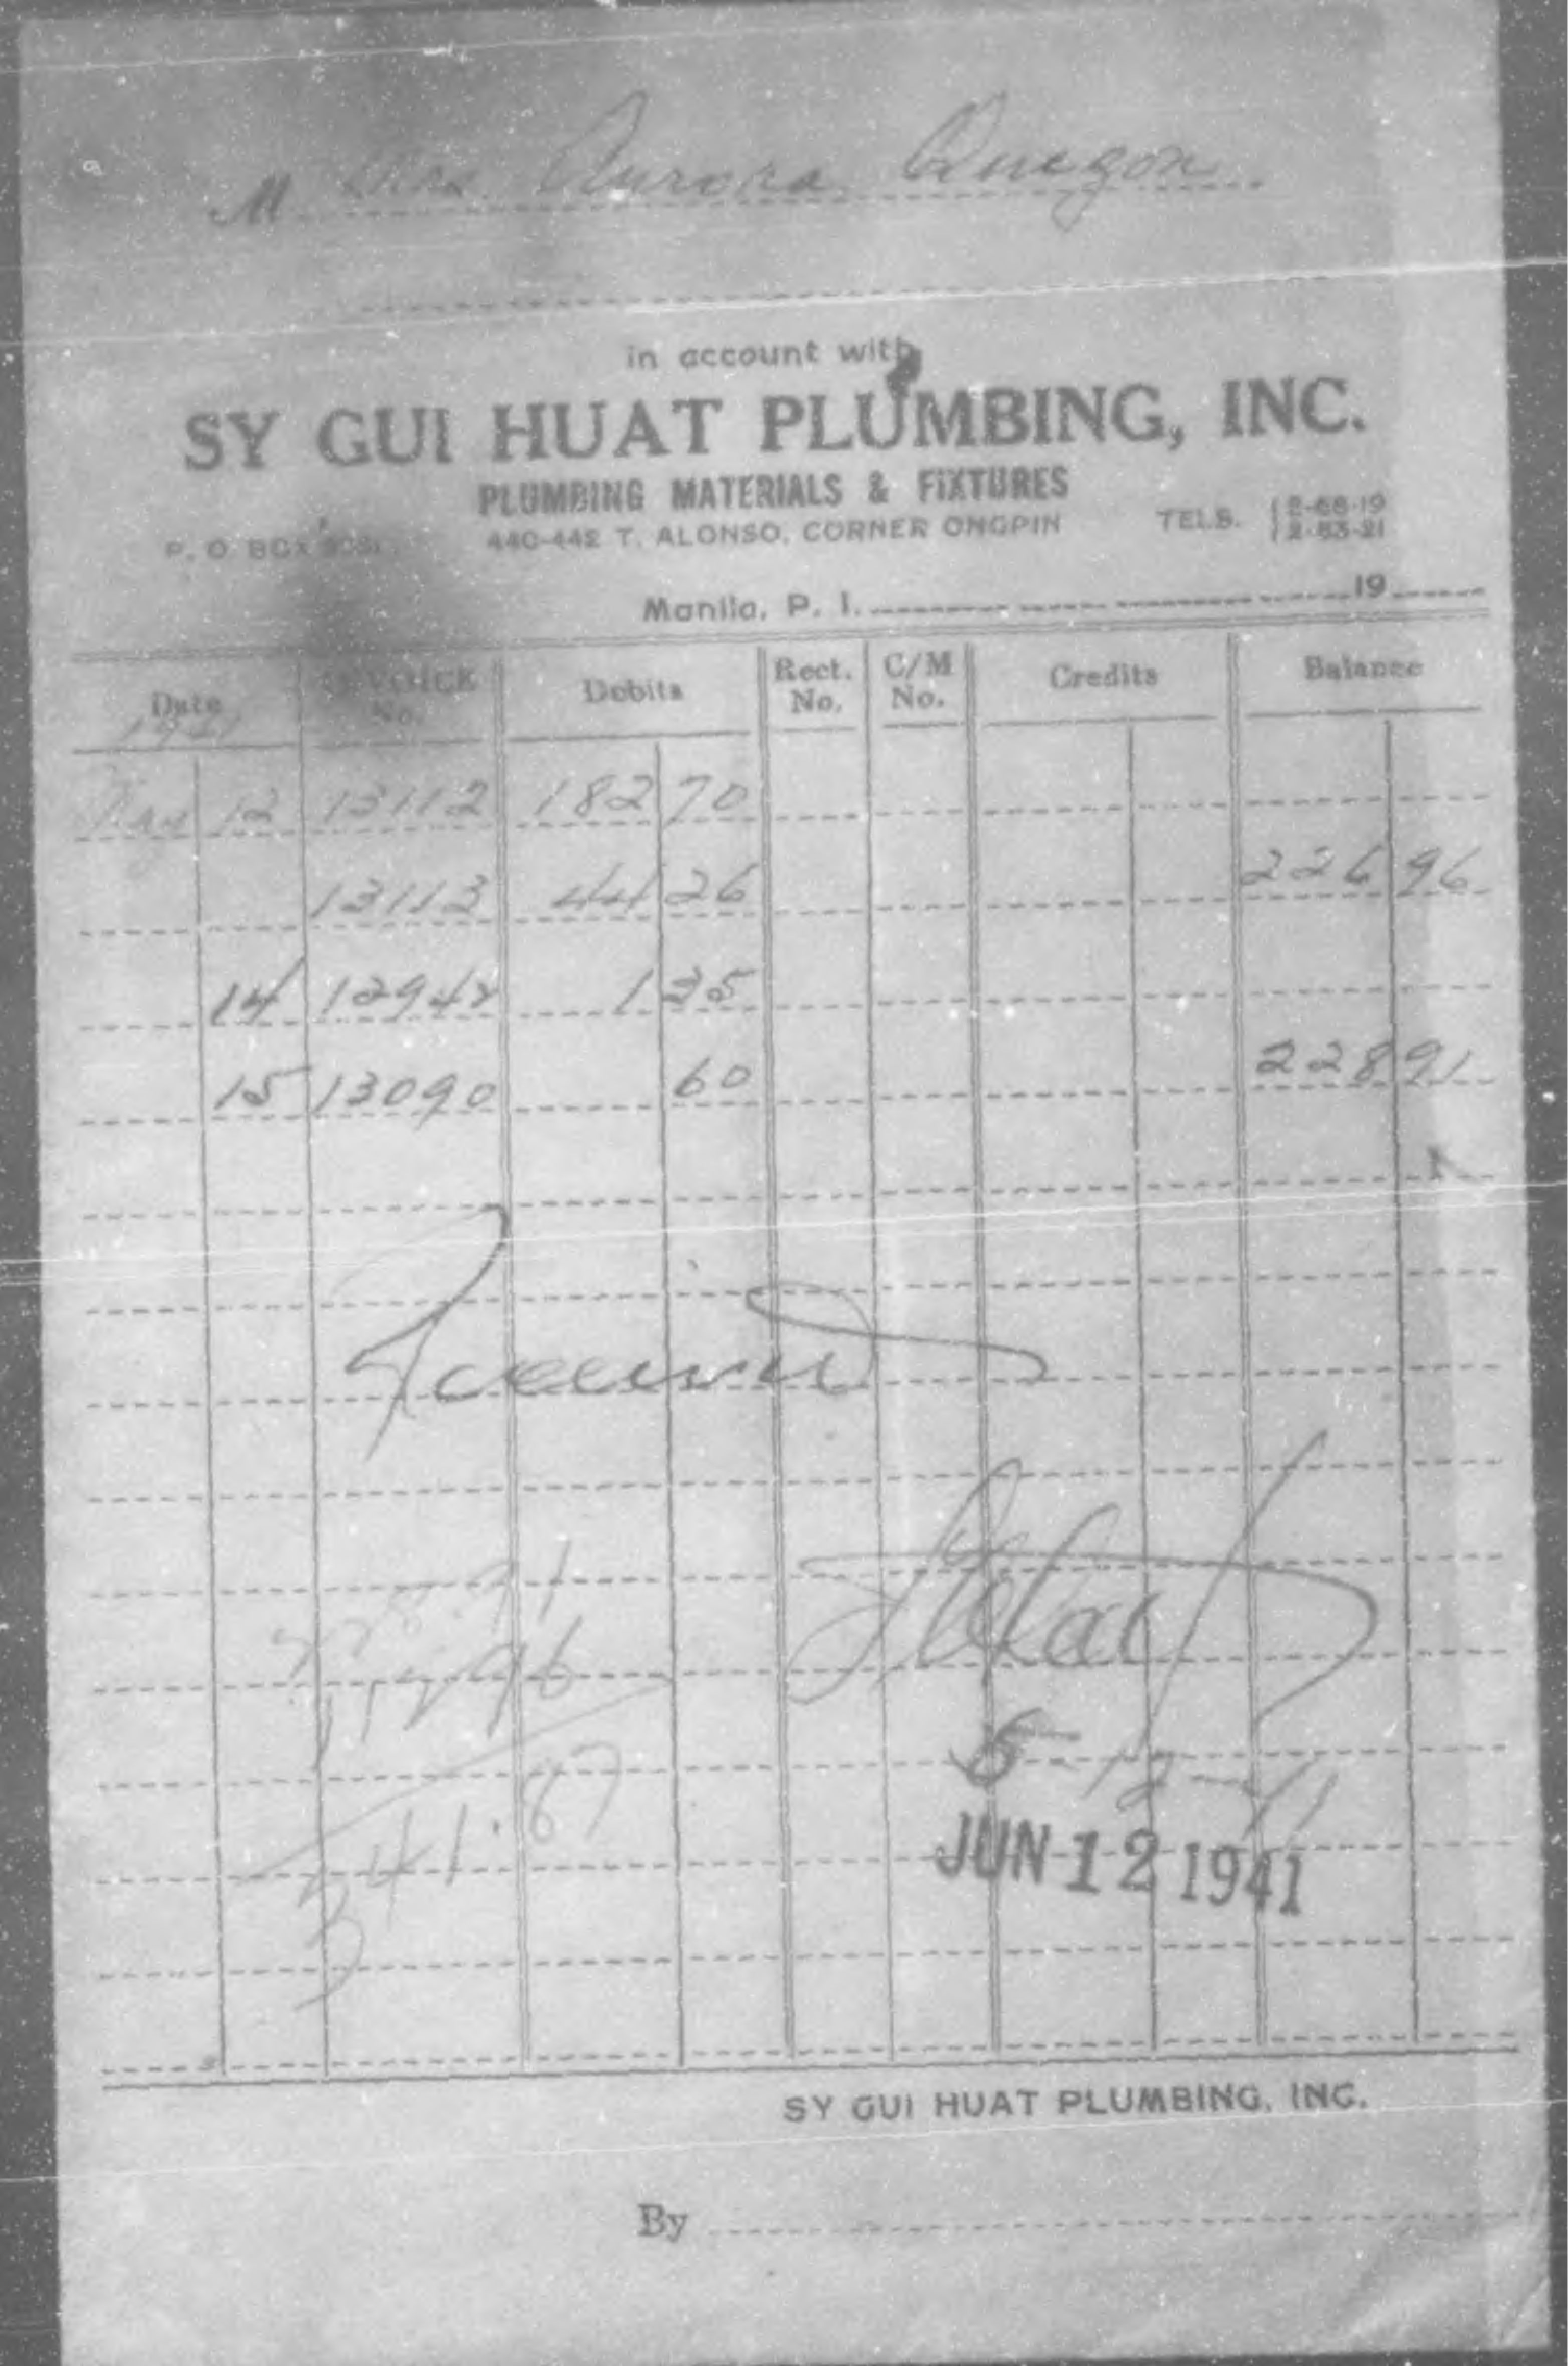 M Mrs. Aurora Quezon
in account with
SY GUI HUAT PLUMBING, INC.
PLUMBING MATERIALS & FIXTURES
P. O. BOX 440-442 T. ALONSO, CORNER ONGPIN TELS. 2-68-19 2-83-21
Manila, P. I. 19
Date INVOICE No. Debits Rect. No. C/M No. Credits Balance
1941
May 12 13112 182 70
13113 44 26 226 96
14 12948 1 35
15 13090 60 228 91
Received
228.91
112.96
341.87
JUN 12 1941
SY GUI HUAT PLUMBING, INC.
By